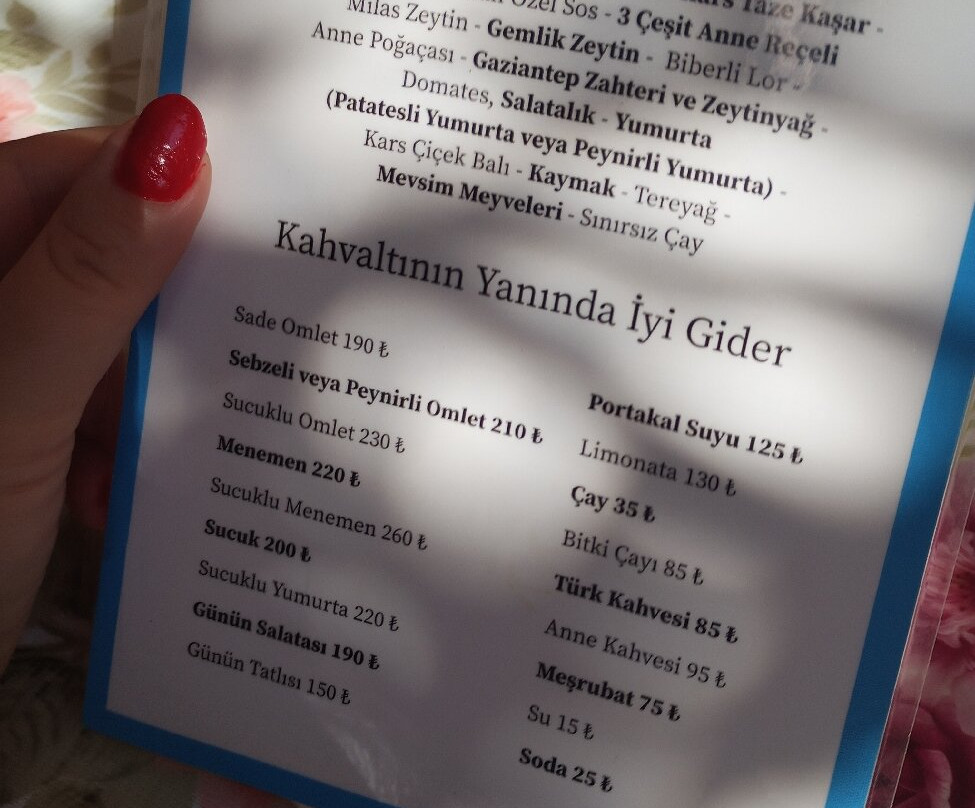 Taze Kaşar -
Özel Sos - 3 Çeşit Anne Reçeli
Milas Zeytin - Gemlik Zeytin - Biberli Lor -
Anne Poğaçası - Gaziantep Zahteri ve Zeytinyağ -
Domates, Salatalık - Yumurta
(Patatesli Yumurta veya Peynirli Yumurta) -
Kars Çiçek Balı - Kaymak - Tereyağ -
Mevsim Meyveleri - Sınırsız Çay
Kahvaltının Yanında İyi Gider
Sade Omlet 190 ₺
Sebzeli veya Peynirli Omlet 210 ₺
Sucuklu Omlet 230 ₺
Menemen 220 ₺
Sucuklu Menemen 260 ₺
Sucuk 200 ₺
Sucuklu Yumurta 220 ₺
Günün Salatası 190 ₺
Günün Tatlısı 150 ₺
Portakal Suyu 125 ₺
Limonata 130 ₺
Çay 35 ₺
Bitki Çayı 85 ₺
Türk Kahvesi 85 ₺
Anne Kahvesi 95 ₺
Meşrubat 75 ₺
Su 15 ₺
Soda 25 ₺